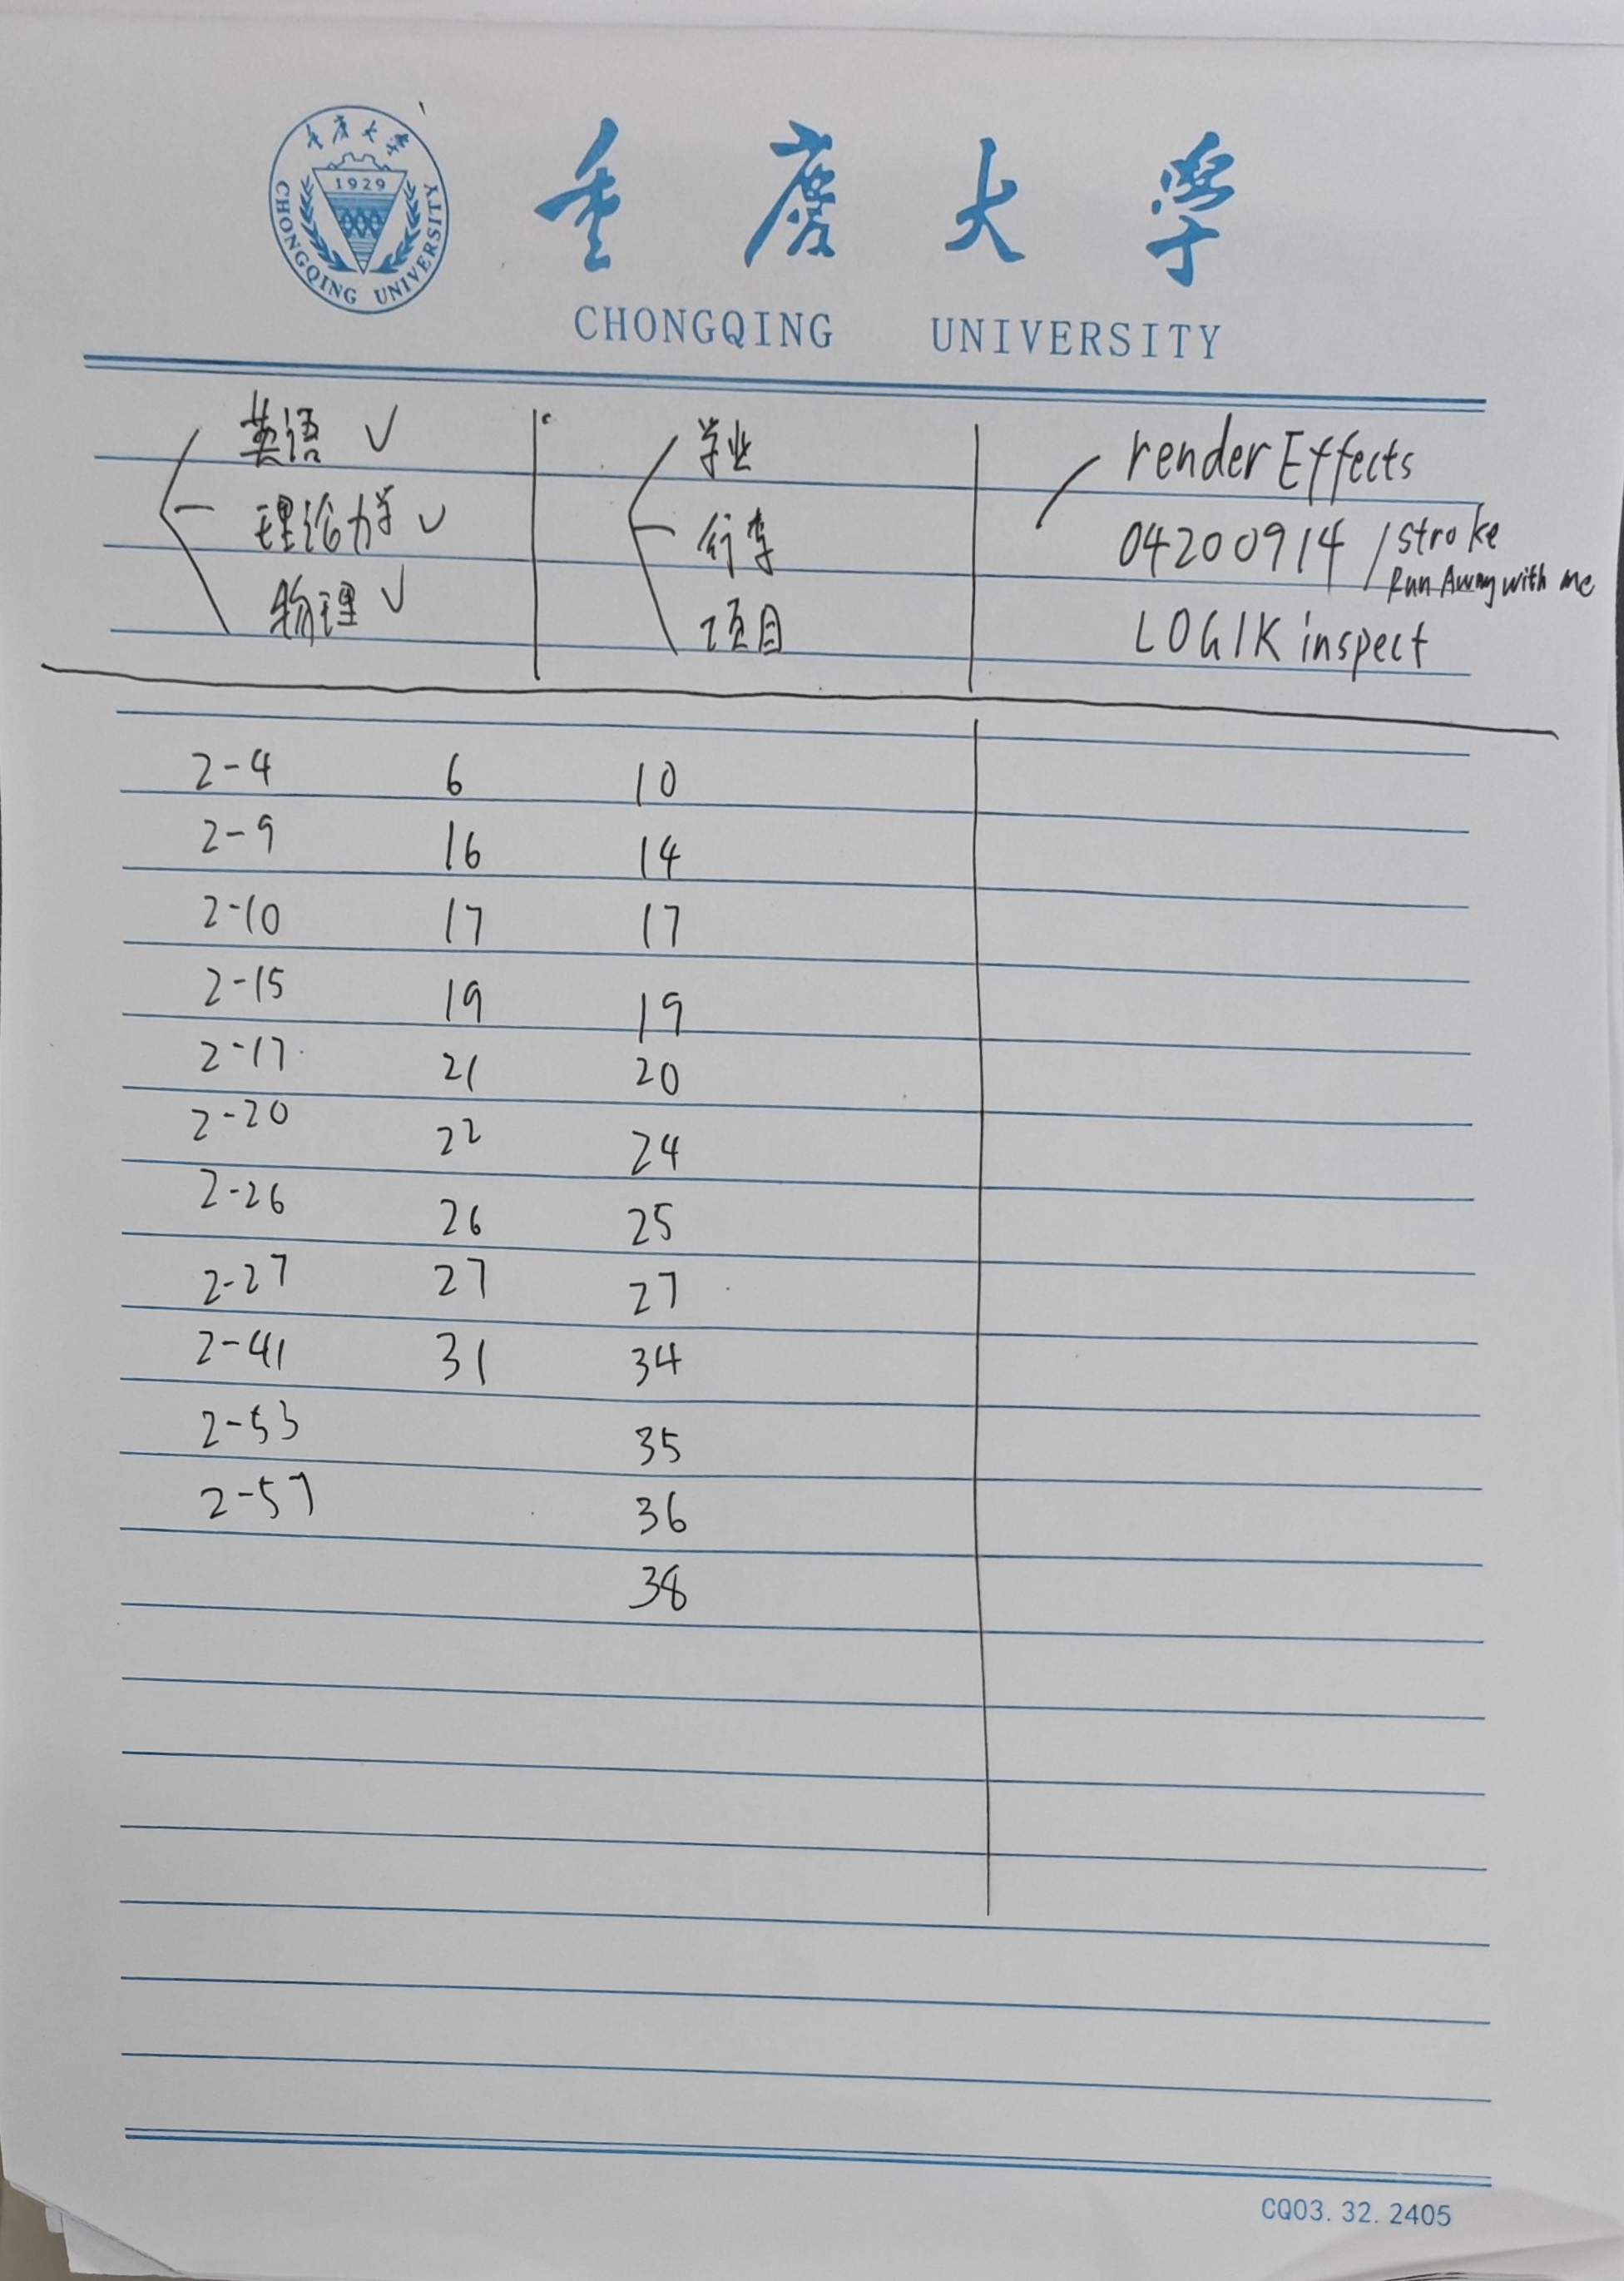 重庆大学
1929
CHONGQING UNIVERSITY
重庆大学
CHONGQING UNIVERSITY
英语 ✓
理论力学 ✓
物理 ✓
学业
行李
项目
render Effects
04200914 / stroke
Run Away with me
LOGIK inspect
2-4 6 10
2-9 16 14
2-10 17 17
2-15 19 19
2-17 21 20
2-20 22 24
2-26 26 25
2-27 27 27
2-41 31 34
2-53 35
2-57 36
38
CQ03.32.2405